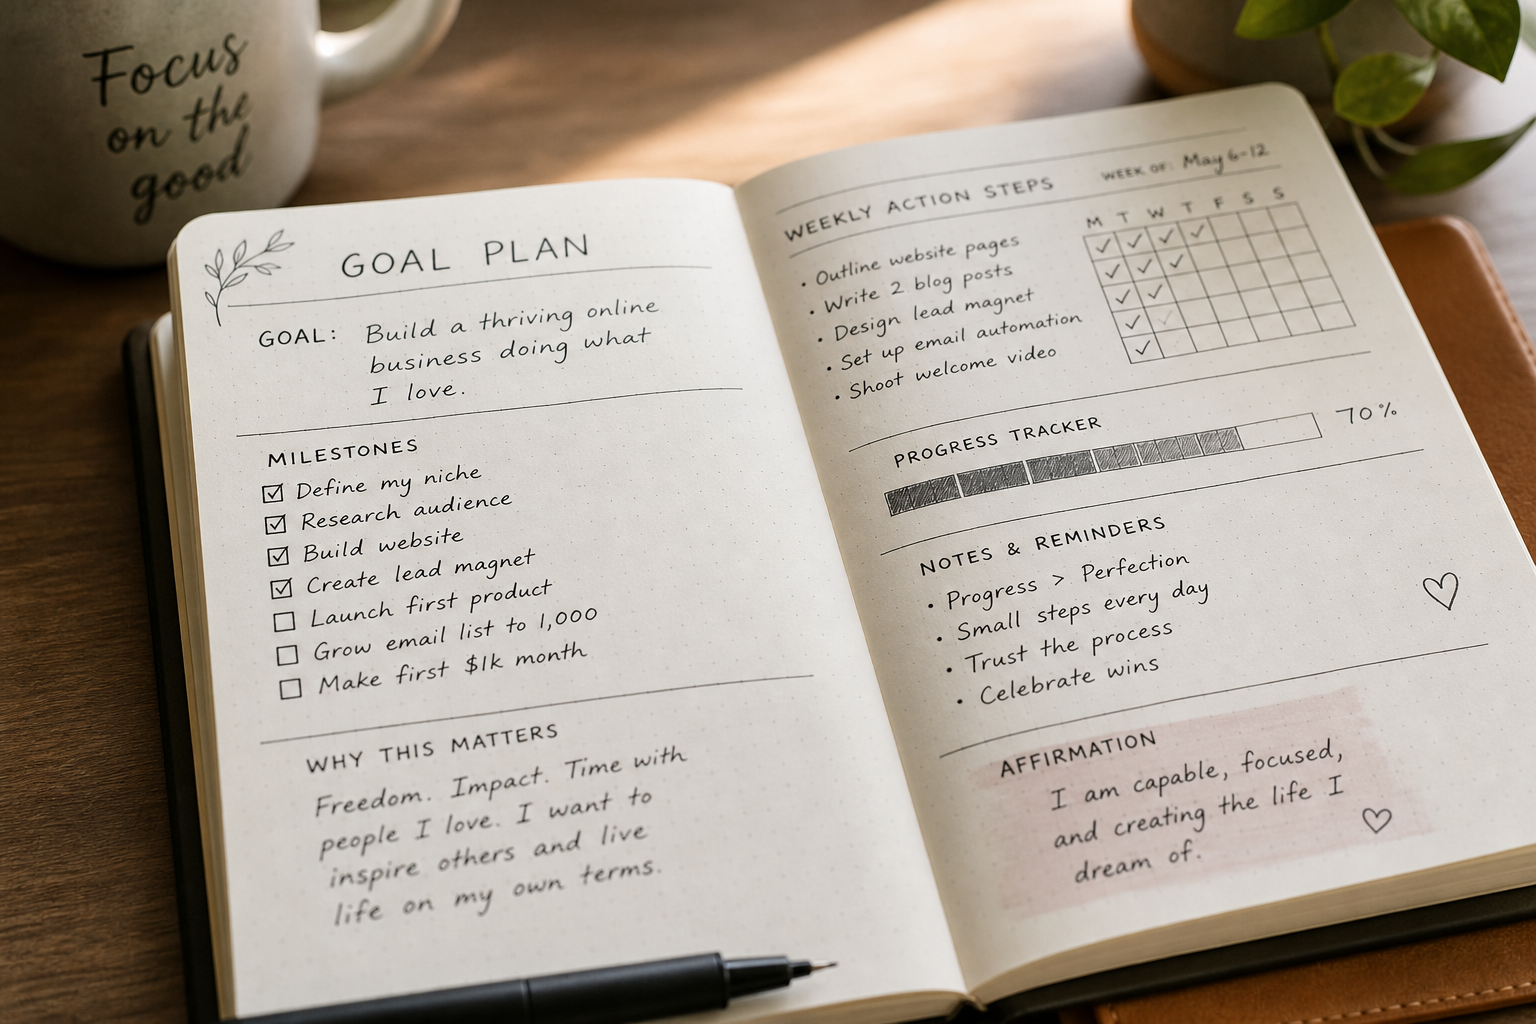 Focus
on the
good
GOAL PLAN
GOAL: Build a thriving online
business doing what
I love.
MILESTONES
Define my niche
Research audience
Build website
Create lead magnet
Launch first product
Grow email list to 1,000
Make first $1k month
WHY THIS MATTERS
Freedom. Impact. Time with
people I love. I want to
inspire others and live
life on my own terms.
WEEKLY ACTION STEPS
WEEK OF: May 6-12
M T W T F S S
• Outline website pages
• Write 2 blog posts
• Design lead magnet
• Set up email automation
• Shoot welcome video
PROGRESS TRACKER
70%
NOTES & REMINDERS
• Progress > Perfection
• Small steps every day
• Trust the process
• Celebrate wins
AFFIRMATION
I am capable, focused,
and creating the life I
dream of.